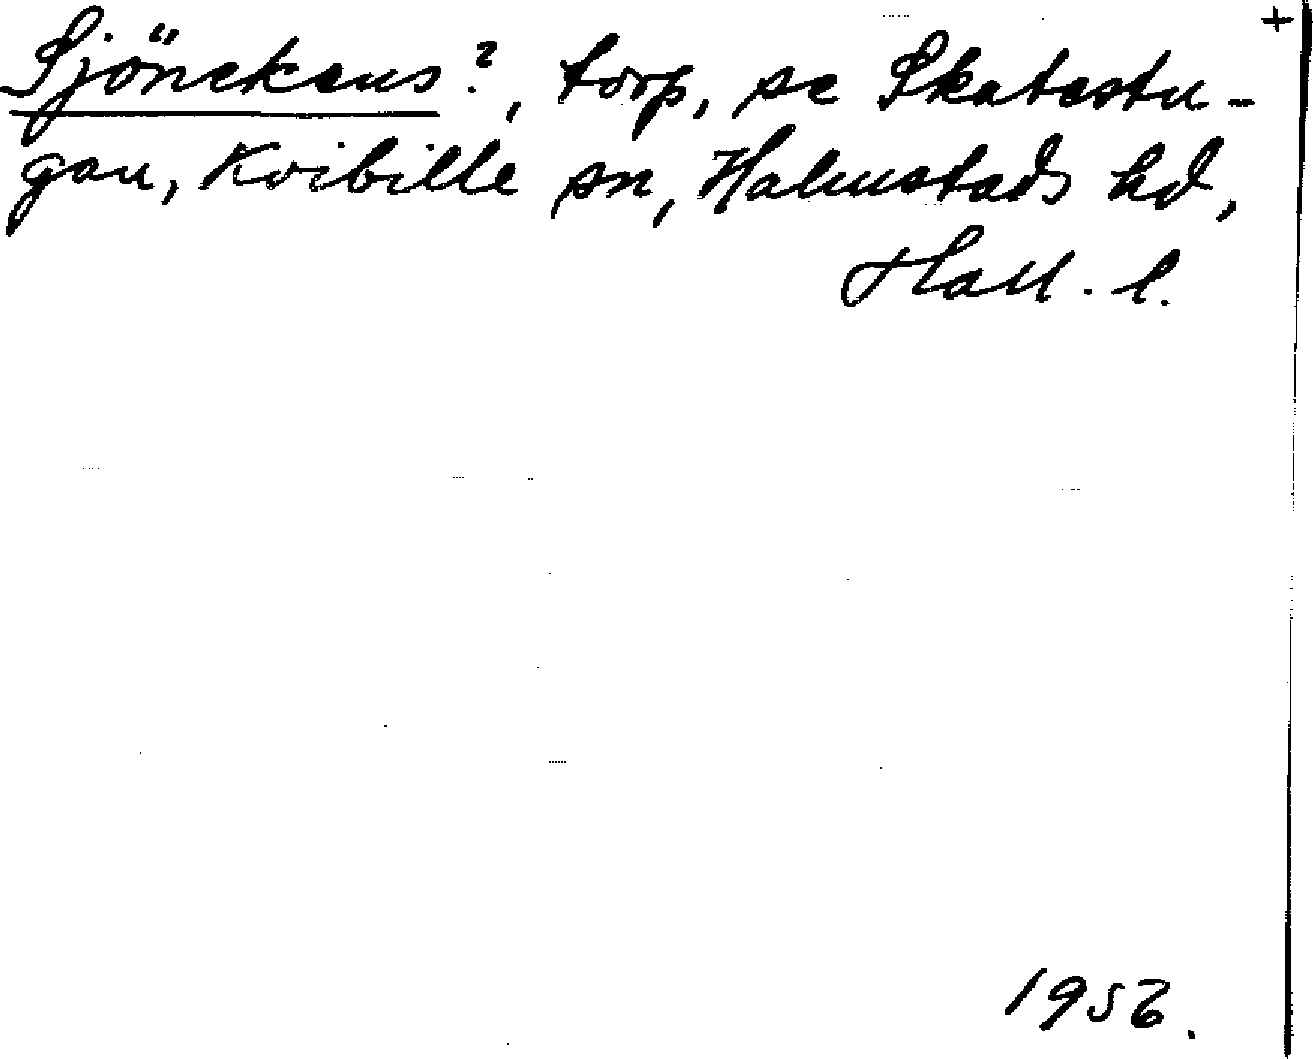 +
Sjönekens?, torp, se Skatestu-
gan, Kvibille sn, Halmstads hd,
Hall. l.
1952.